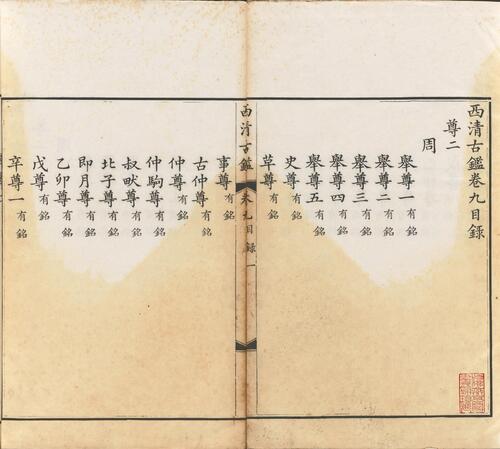 西清古鑑卷九目錄
尊二
周
舉尊一 有銘
舉尊二 有銘
舉尊三 有銘
舉尊四 有銘
舉尊五 有銘
史尊 有銘
草尊 有銘
西清古鑑 卷九目錄 一
事尊 有銘
古仲尊 有銘
仲尊 有銘
仲駒尊 有銘
叔畎尊 有銘
北子尊 有銘
即月尊 有銘
乙卯尊 有銘
戊尊 有銘
辛尊一 有銘